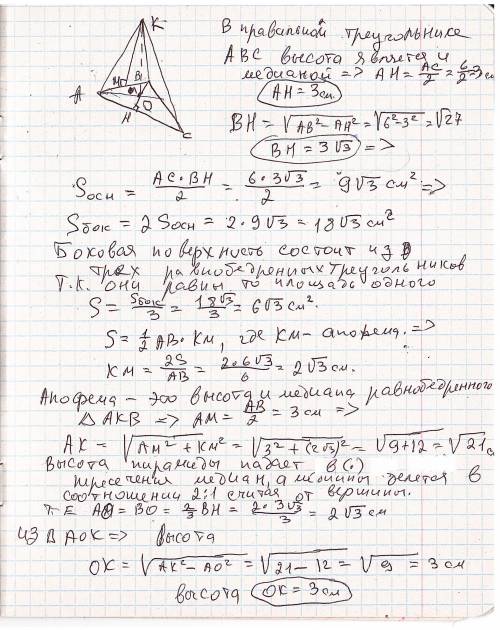 K
В правальной треугольнике
ABC высота является и
медианой => AH = AC/2 = 6/2 = 3 см
AH = 3 см
BH = √AB² - AH² = √6² - 3² = √27
BH = 3√3 =>
A
M
B
O
H
C
Sосн = AC · BH/2 = 6 · 3√3/2 = 9√3 см² =>
Sбок = 2 Sосн = 2 · 9√3 = 18√3 см²
Боковая поверхность состоит из
трех равнобедренных треугольников
Т.к. они равны то площадь одного
S = Sбок/3 = 18√3/3 = 6√3 см².
S = 1/2 AB · KM, где KM - апофема. =>
KM = 2S/AB = 2 · 6√3/6 = 2√3 см.
Апофема - это высота и медиана равнобедренного
△ AKB => AM = AB/2 = 3 см =>
AK = √AM² + KM² = √3² + (2√3)² = √9 + 12 = √21 с
Высота пирамиды падает в (·)
пресечения медиан, а медианы делется в
соотношении 2:1 считая от вершины.
Т.Е AO = BO = 2/3 BH = 2 · 3√3/3 = 2√3 см
Из △ AOK => высота
OK = √AK² - AO² = √21 - 12 = √9 = 3 см
высота OK = 3 см